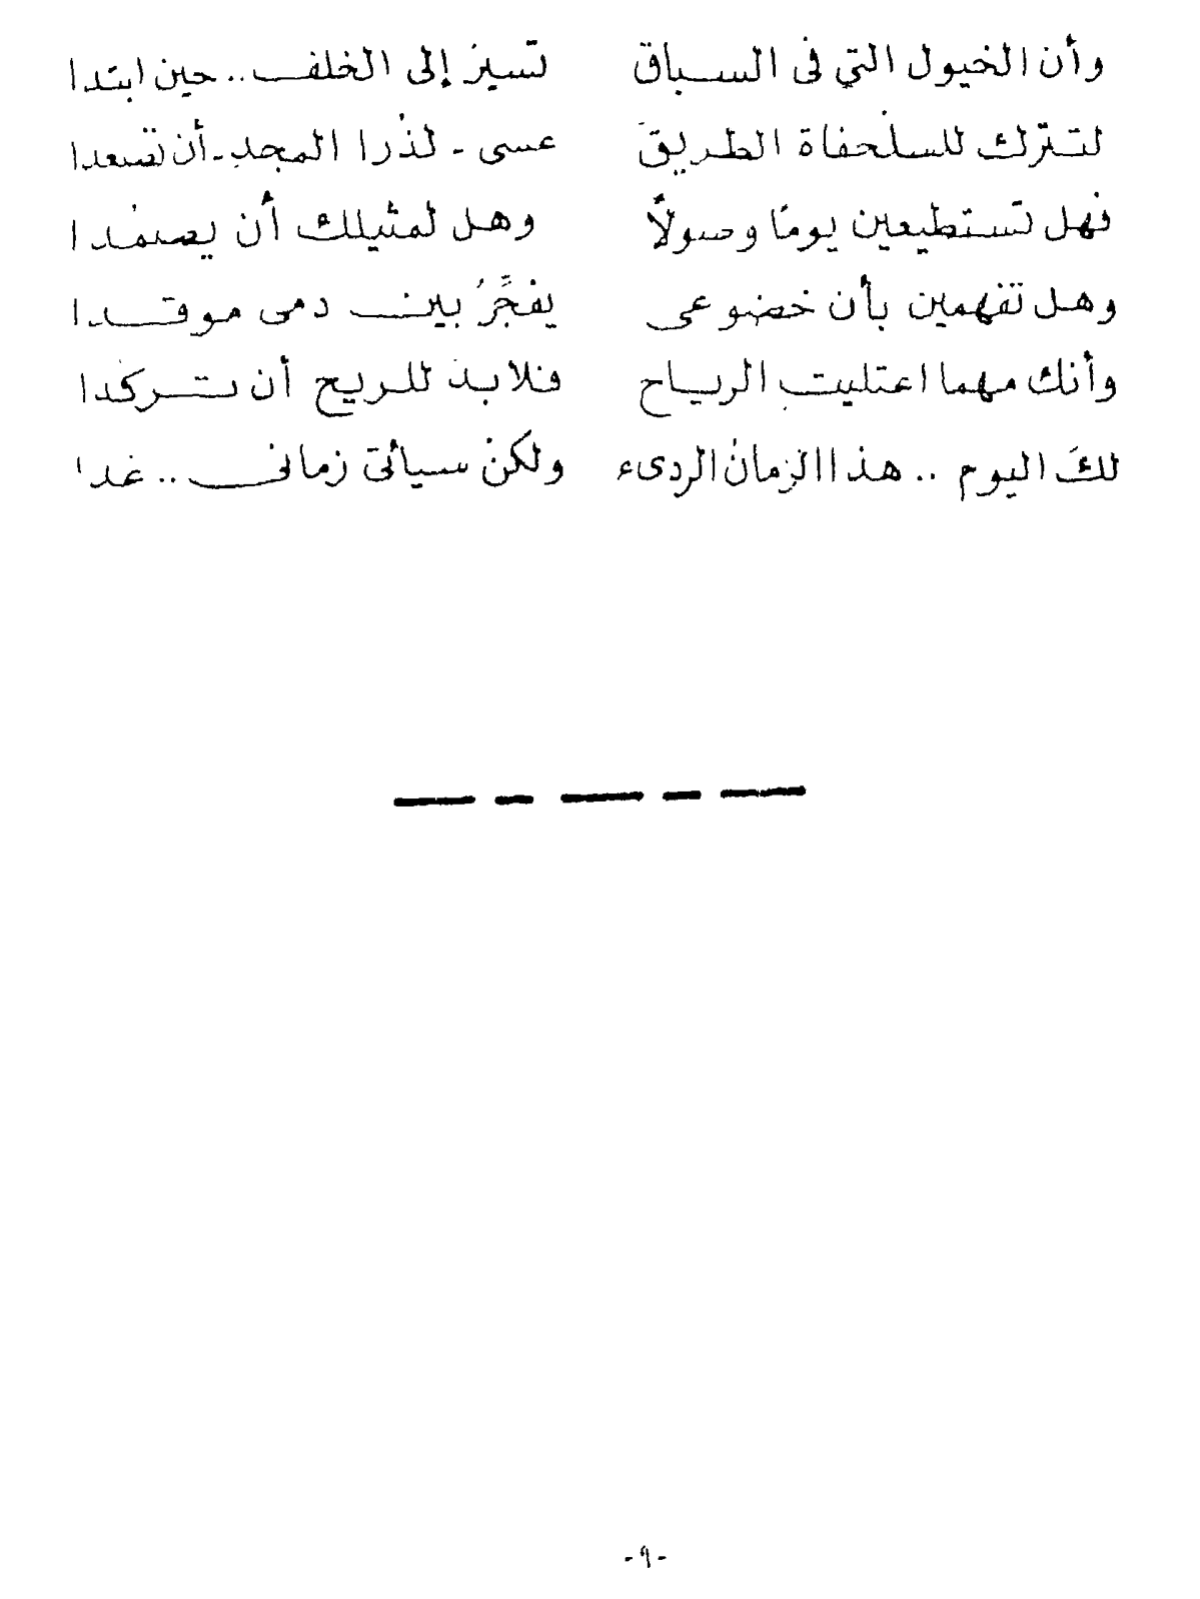 وأن الخيول التي فى السباق تسيرُ إلى الخلف .. حين ابتدا
لتترك للسلحفاة الطريقَ عسى - لذُرا المجدِ - أن تصعدا
فهل تستطيعين يومًا وصولاً وهل لمثيلك أن يصمُدا
وهل تفهمين بأن خضوعى يفجِّرُ بين دمى موقدا
وأنك مهما اعتليتِ الرياح فلابدَ للريح أن تركُدا
لكَ اليوم .. هذا الزمانُ الردىء ولكنْ سيأتى زمانى .. غدا
-٩-